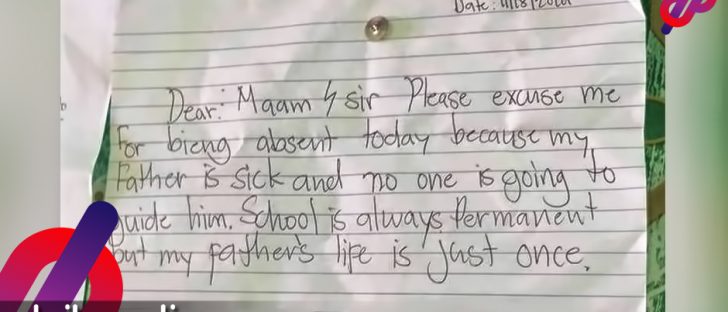 Date:
Dear: Maam & sir Please excuse me
For bieng absent today because my
Father is sick and no one is going to
guide him. School is always Permanent
but my father's life is just once.